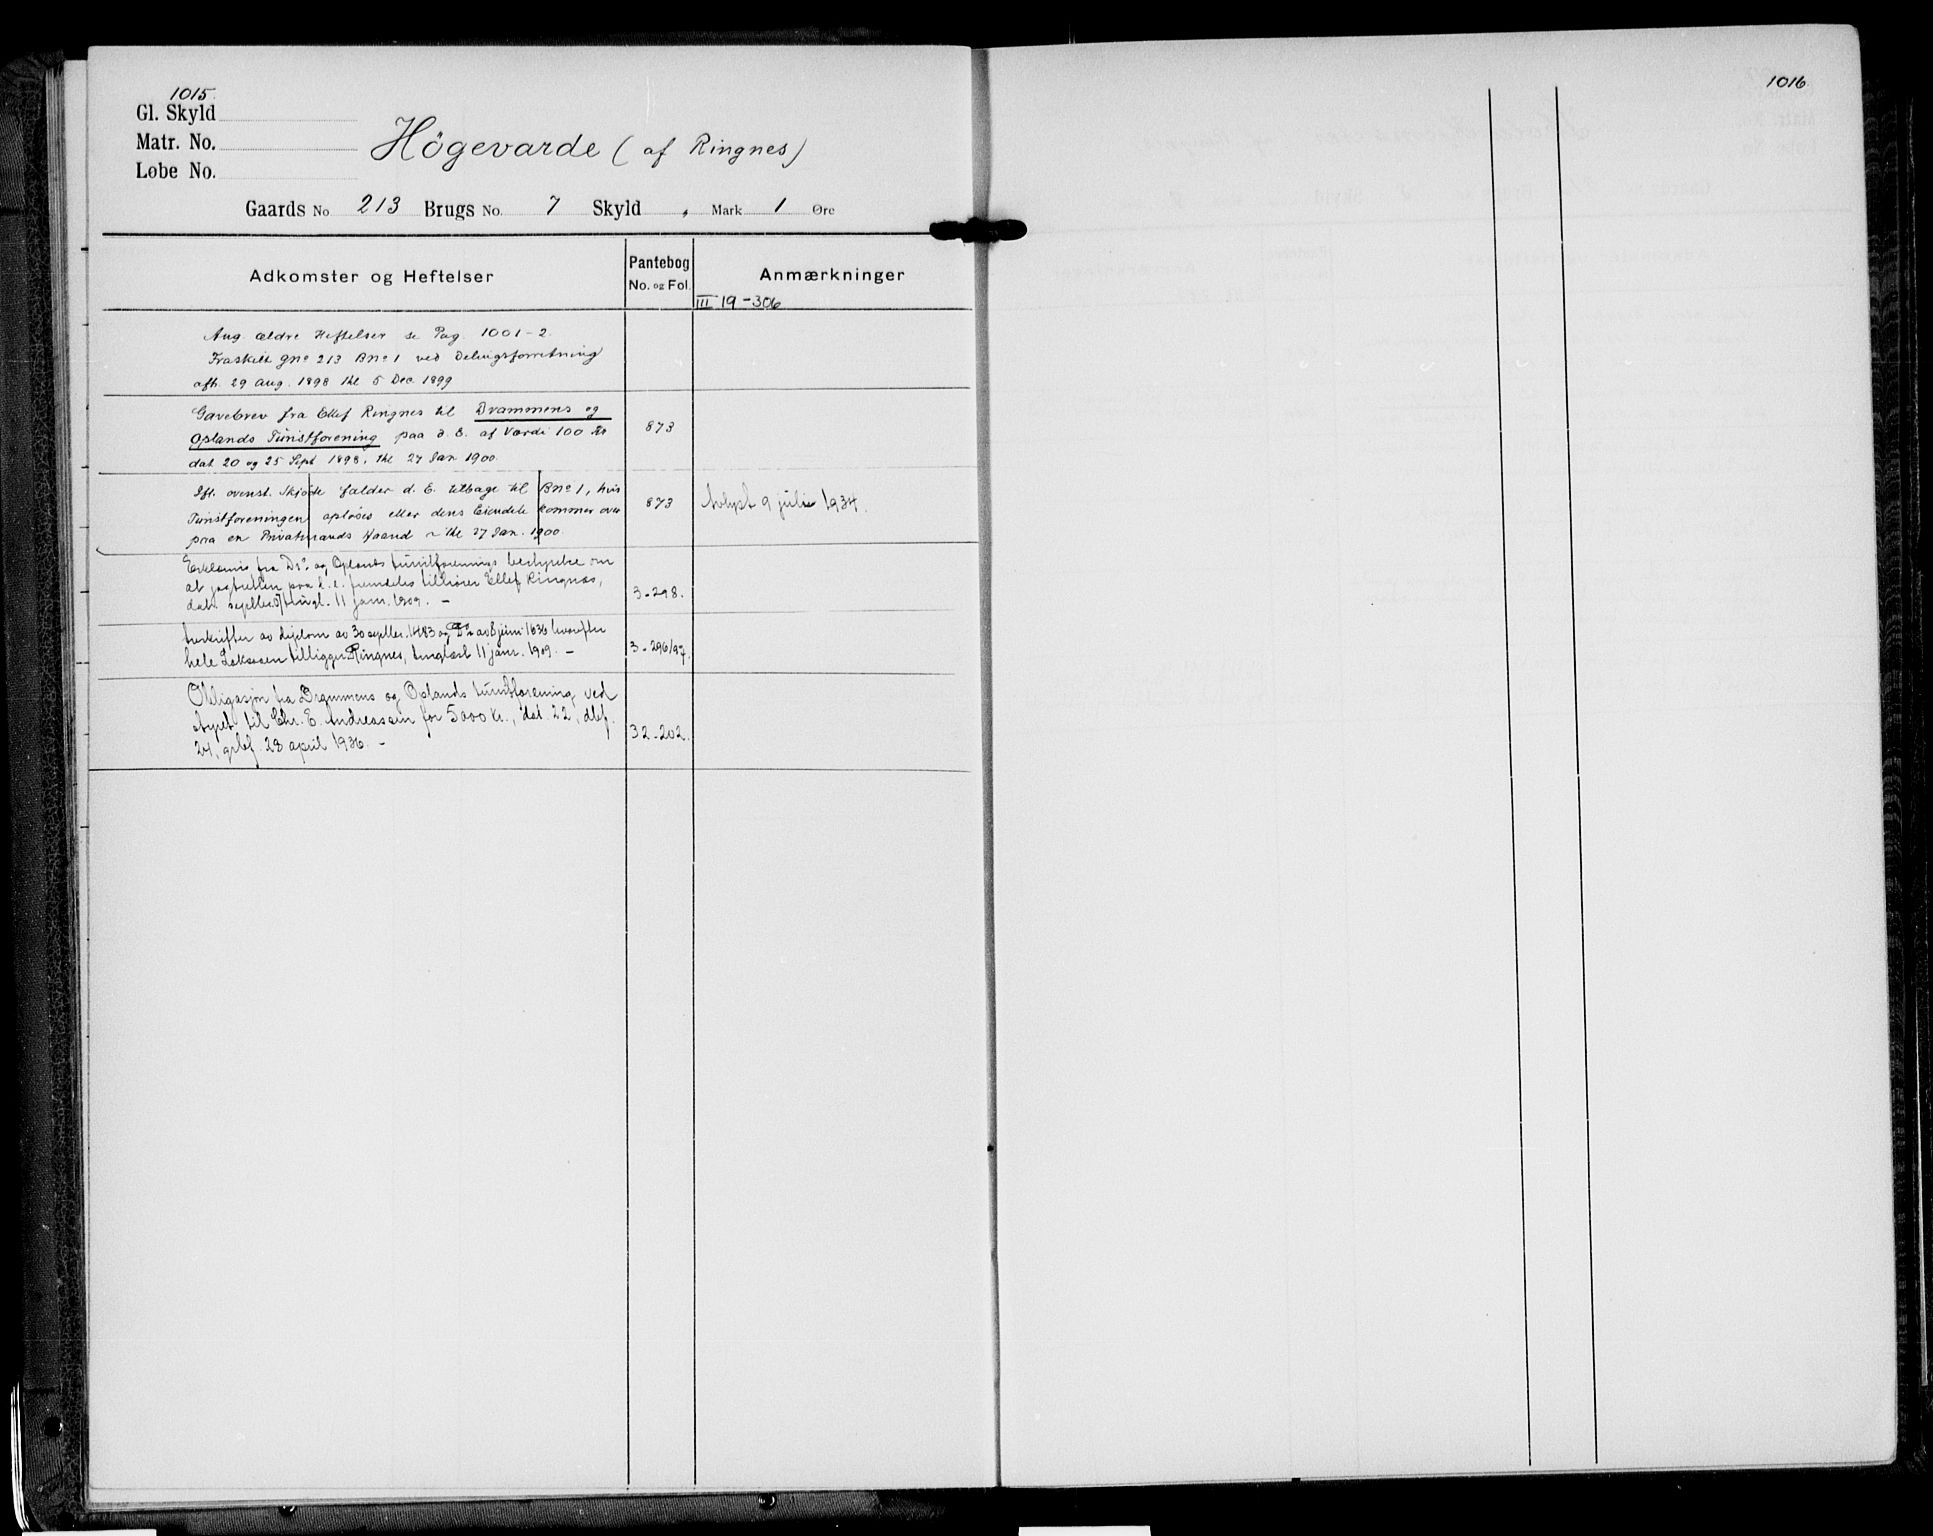 1015.
Gl. Skyld
Matr. No.
Høgevarde (af Ringnes)
Løbe No.
Gaards No 213 Brugs No. 7 Skyld , Mark 1 Øre
Adkomster og Heftelser
Pantebog
No. og Fol.
Anmærkninger
III 19-306
Ang. ældre Heftelser se Pag. 1001-2
Fraskilt Gno 213 Bno 1 ved Delingsforretning
afh. 29 Aug. 1898 thl 5 Dec. 1899
Gavebrev fra Ellef Ringnes til Drammens og
Oplands Turistforening paa d. E. af Værdi 100 Kr
dat 20 og 25 Sept 1898, thl 27 Jan 1900.
873
Ifl. ovenst. Skjøde falder d. E. tilbage til Bno 1, hvis
Turistforeningen opløses eller dens Eiendele kommer over
paa en Privatmands Haand thl 27 Jan. 1900.
873
Avlyst 9 juli 1934.
Erklæring fra Drs og Oplands turistforenings bestyrelse om
at jagtretten paa d. e. fremdeles tilhører Ellef Ringnæs,
tingl. 11 jan. 1909. -
3-298.
av diplom av 30 1483 og Do av 8 juni 1636 hvorefter
hele tilligger Ringnes, tinglæst 11 jan. 1909. -
3-296/97.
Obligasjon fra Drammens og Oplands turistforening ved
styret til Chr. E. Andreassen for 5000 kr., dat. 22, dbf.
24, grbf. 28 april 1936. -
32-202.
1016.